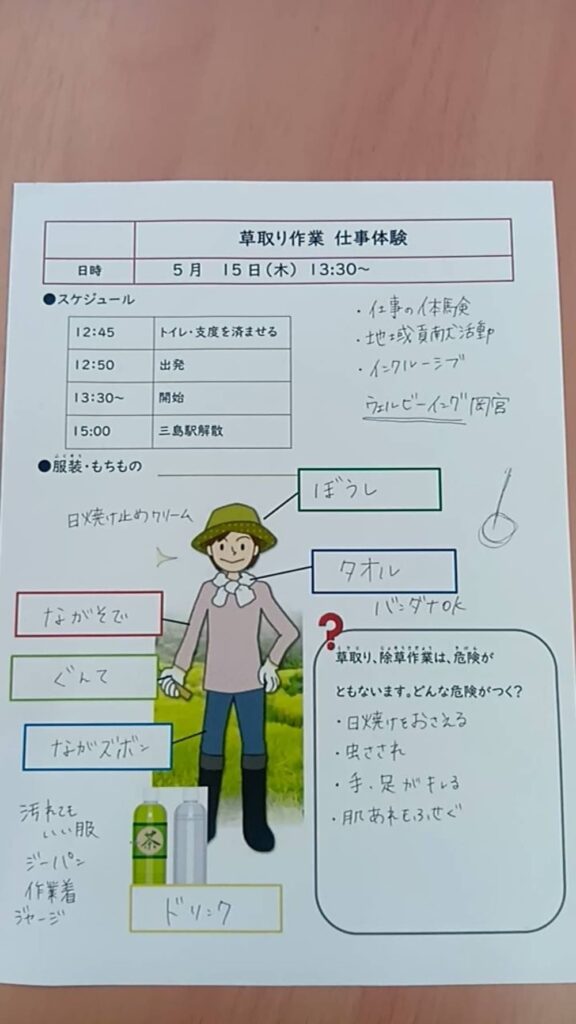 草取り作業 仕事体験
日時 5月 15日(木) 13:30~
●スケジュール
12:45 トイレ・支度を済ませる
12:50 出発
13:30~ 開始
15:00 三島駅解散
・仕事の体験
・地域貢献活動
・インクルーシブ
ウェルビーイング岡宮
●服装・もちもの
ふくそう
日焼け止めクリーム
ぼうし
タオル
バンダナOK
ながそで
ぐんて
ながズボン
汚れても
いい服
ジーパン
作業着
ジャージ
茶
ドリンク
?
草取り、除草作業は、危険が
ともないます。どんな危険がつく?
・日焼けをおさえる
・虫さされ
・手、足がキレる
・肌あれをふせぐ